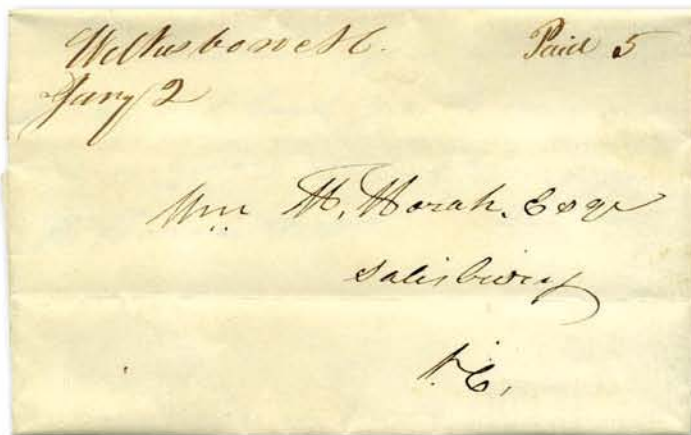 Wilkesboro N.C. Paid 5
Jany 2
Wm H. Horah. Esqr
Salisbury
N.C.